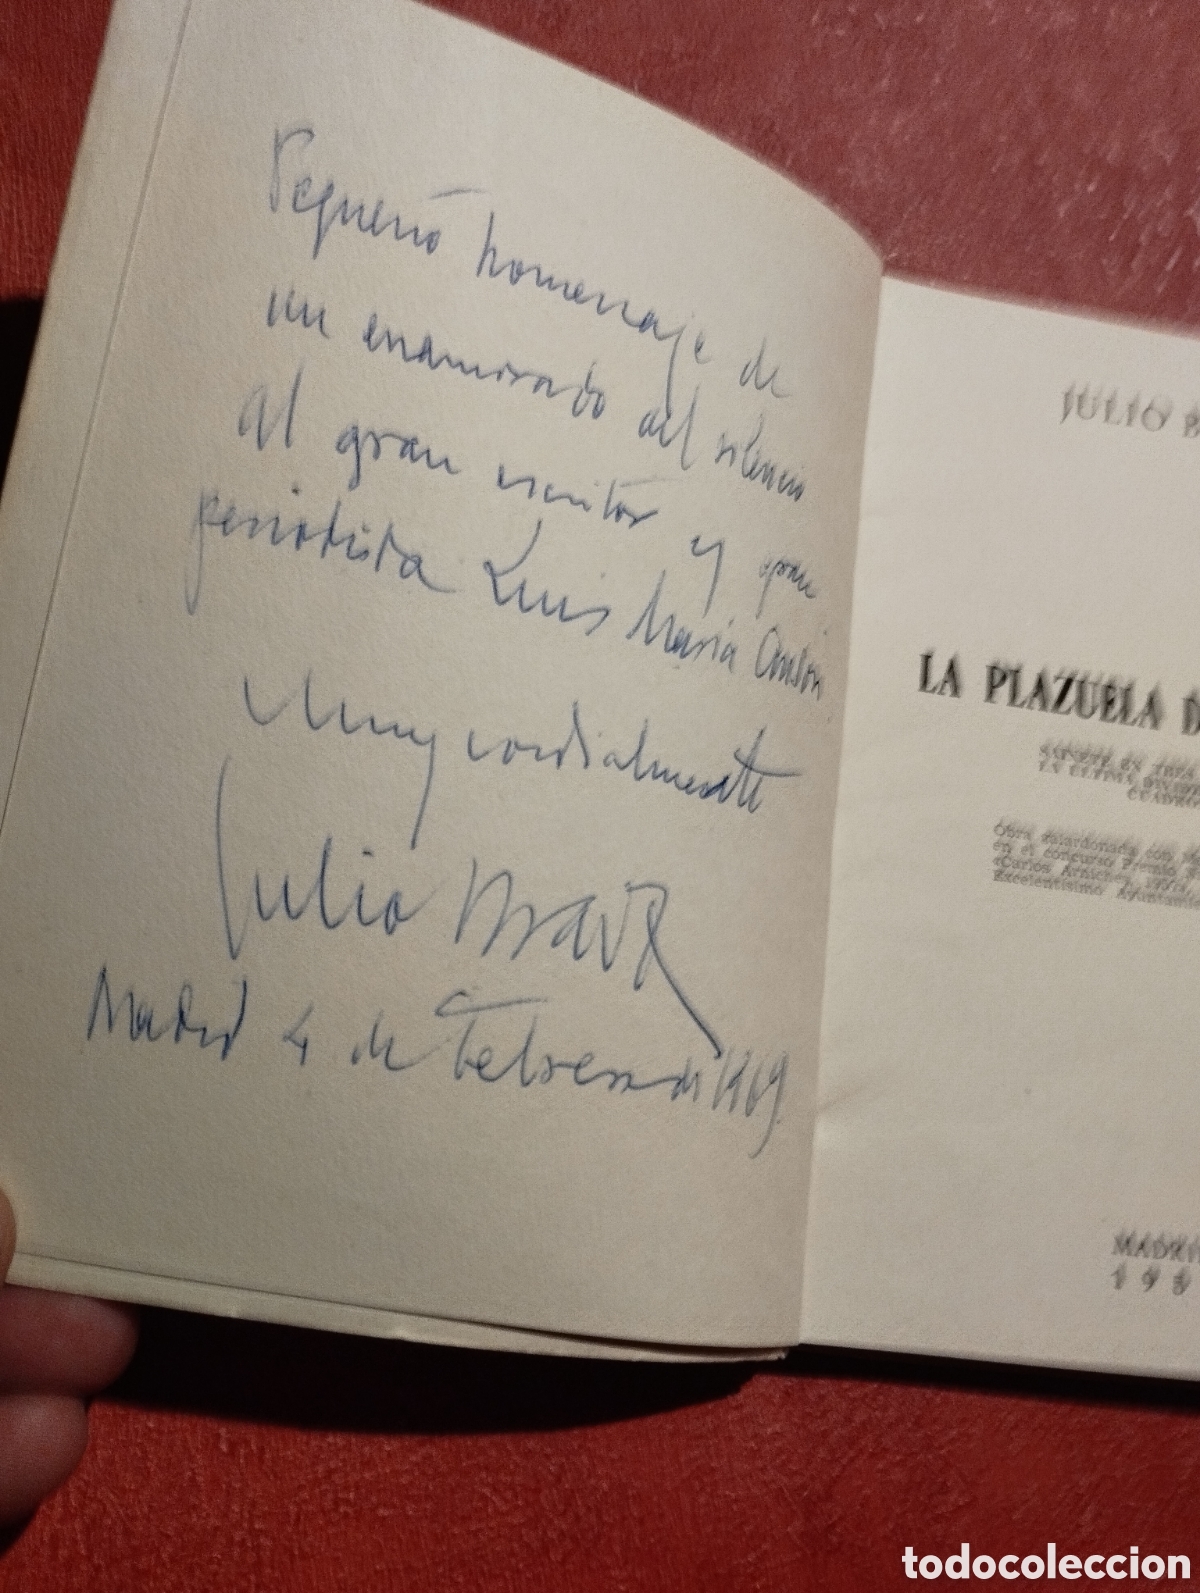 Pequeño homenaje de
un enamorado del silencio
al gran escritor y gran
periodista Luis María Anson
Muy cordialmente
Julio Brav
Madrid 4 de Febrero de 1969
JULIO B
LA PLAZUELA D
SAINETE EN TRES
LA ULTIMA DIVIDI
CUADRO
Obra galardonada con
en el concurso Premio
«Carlos Arniches»
Excelentísimo Ayuntamie
MADRI
195
todocoleccion